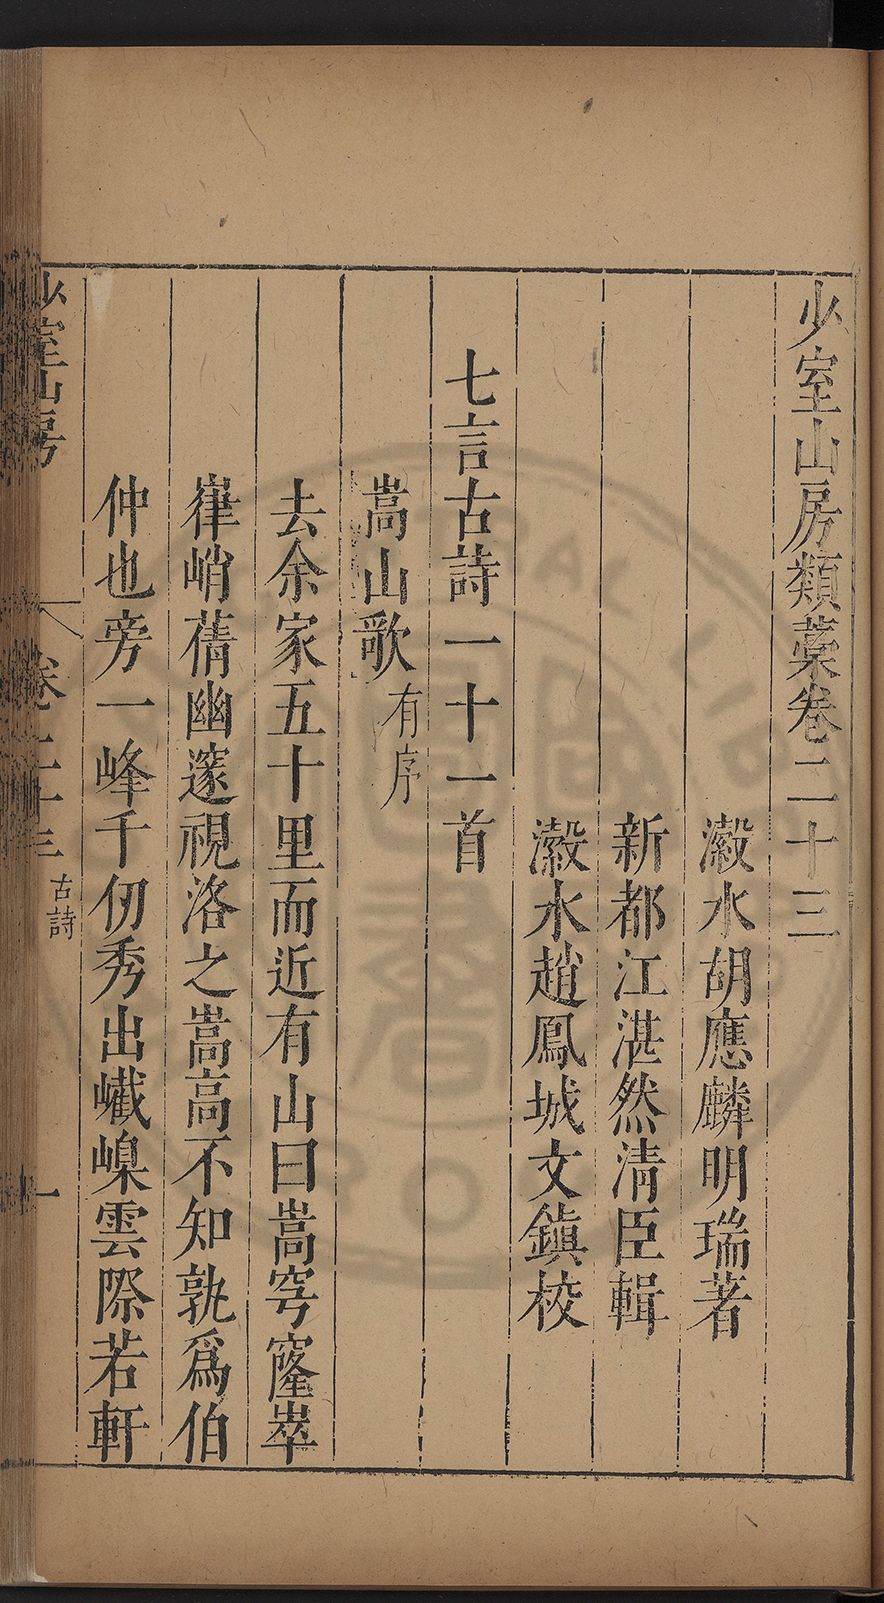 少室山房類藁卷二十三
瀫水胡應麟明瑞著
新都江湛然清臣輯
瀫水趙鳳城文鎮校
七言古詩一十一首
嵩山歌有序
去余家五十里而近有山曰嵩穹窿崒
嵂峭蒨幽邃視洛之嵩高不知孰爲伯
仲也旁一峰千仞秀出巀嵲雲際若軒
少室山房 卷二十三 古詩 一